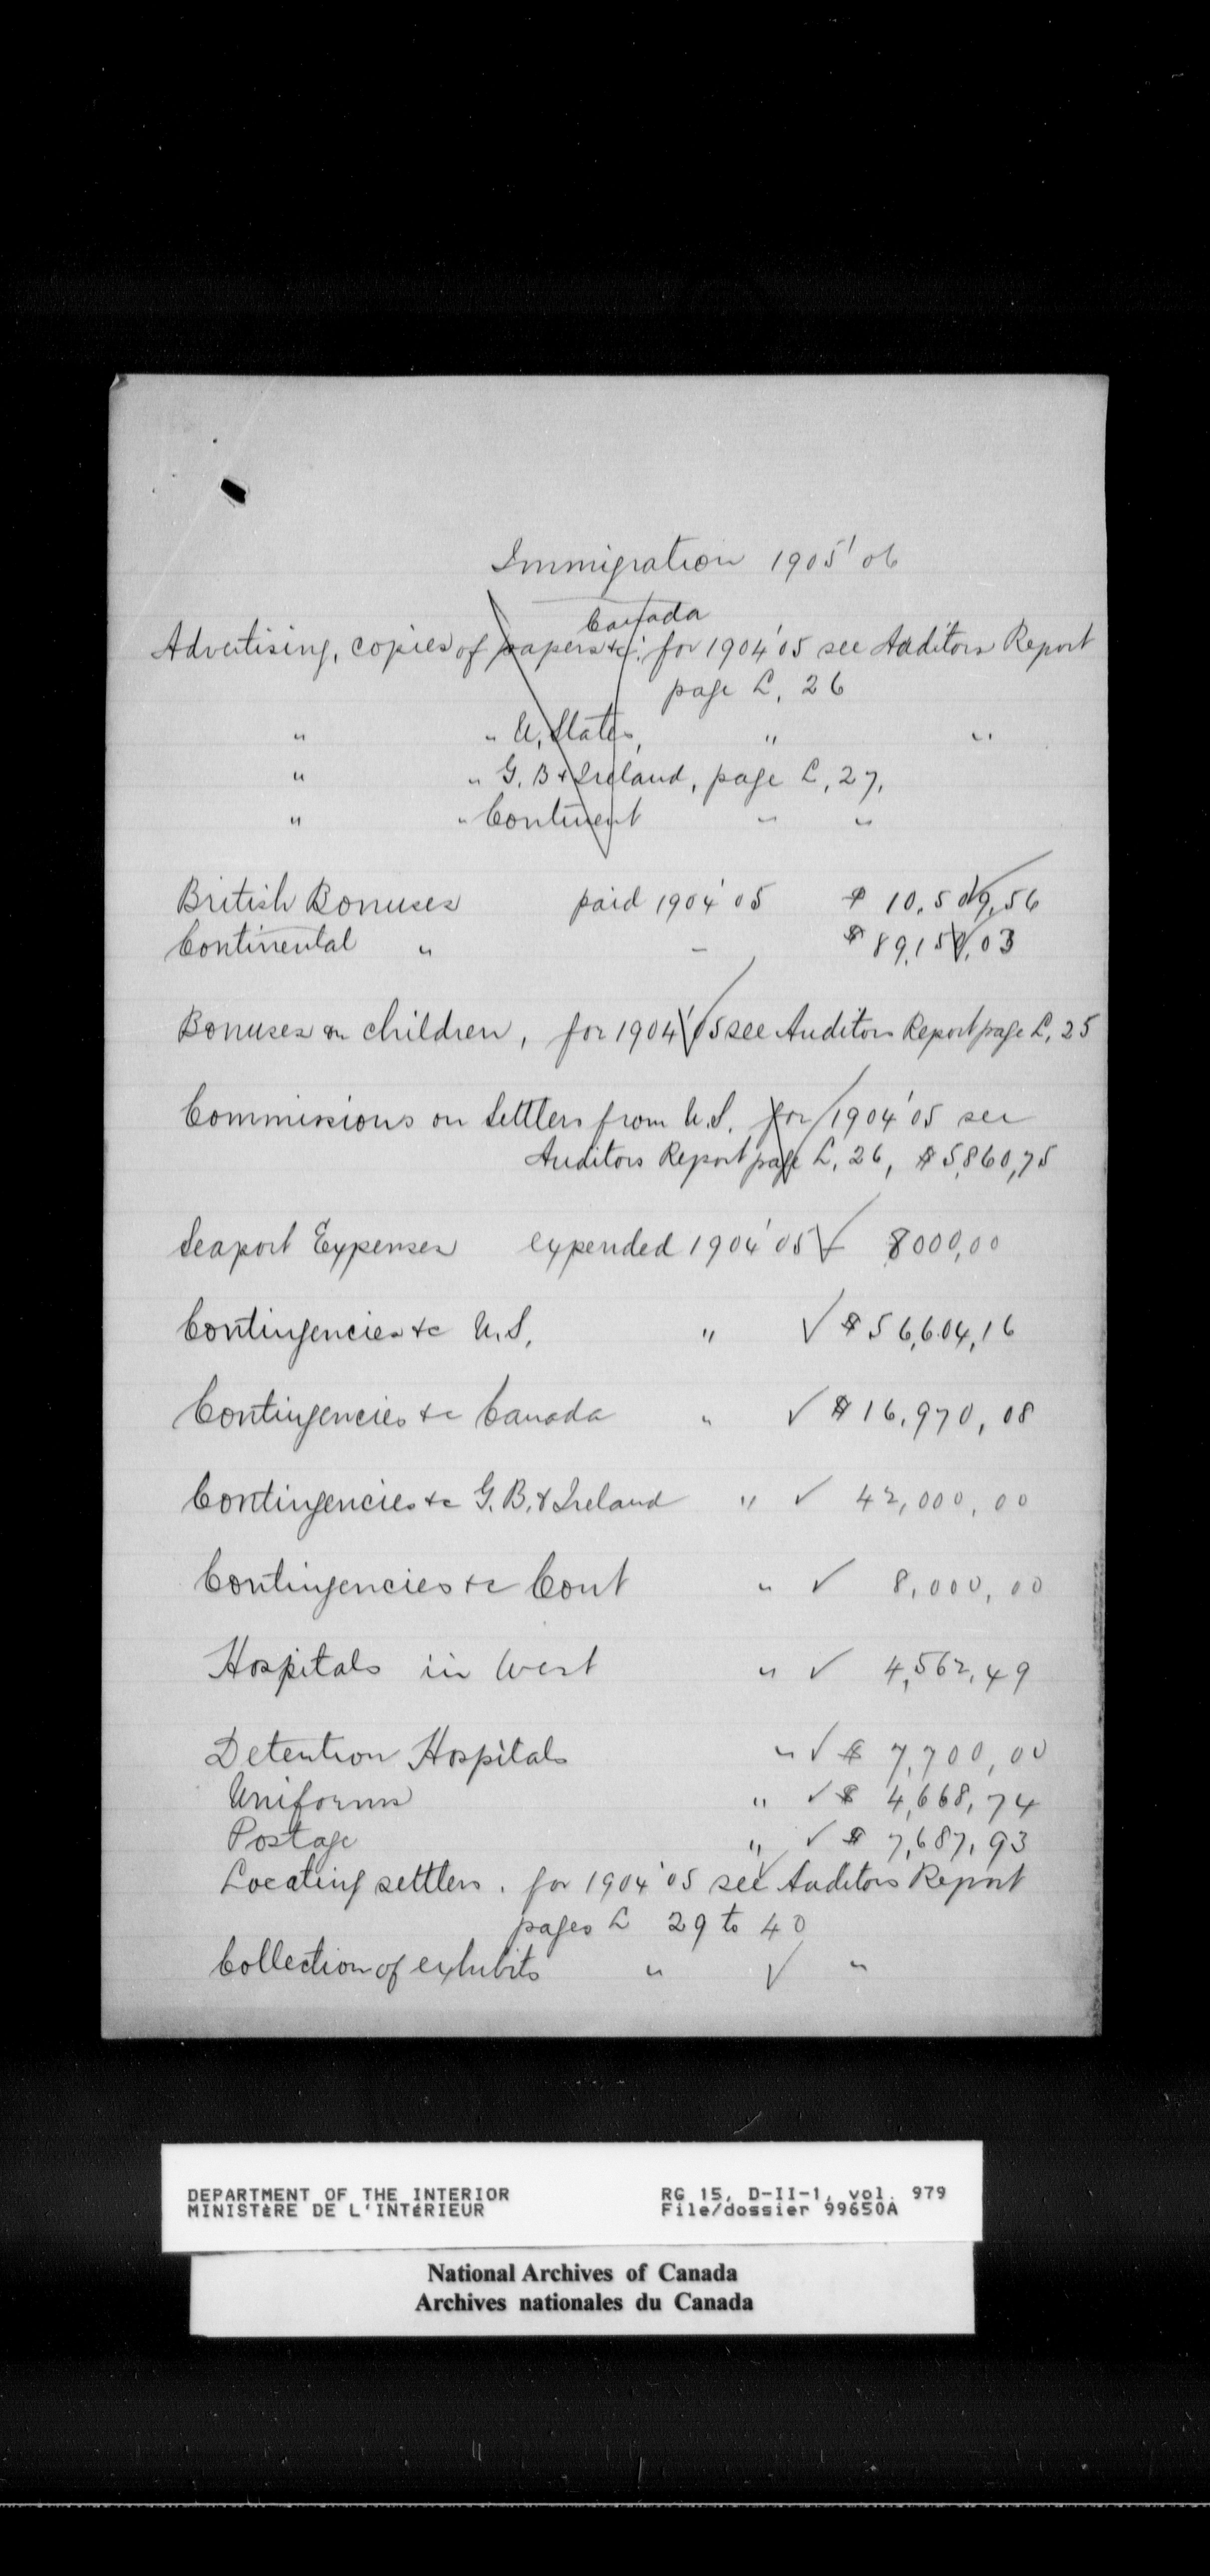 Immigration 1905'06
Canada
Advertising, copies of papers &c. for 1904'05 see Auditors Report
page L, 26
" " U, States, " "
" " G. B & Ireland, page L, 27,
" " Continent " "
British Bonuses paid 1904'05 $ 10,509,56
Continental " - $ 89,15 ,03
Bonuses on children, for 1904'05 see Auditors Report page L, 25
Commissions on Settlers from U.S. for 1904'05 see
Auditors Report page L, 26, $5,860,75
Seaport Expenses expended 1904'05 ✓ 8000,00
Contingencies &c U.S, " ✓ $56,604,16
Contingencies &c Canada " ✓ $16,970,08
Contingencies &c G.B. & Ireland " ✓ 42,000,00
Contingencies &c Cont " ✓ 8,000,00
Hospitals in West " ✓ 4,562,49
Detention Hospitals " ✓ $ 7,700,00
Uniforms " ✓ $ 4,668,74
Postage " ✓ $ 7,687,93
Locating settlers. for 1904'05 see Auditors Report
pages L 29 to 40
Collection of exhibits " ✓ "
DEPARTMENT OF THE INTERIOR RG 15, D-II-1, vol. 979
MINISTèRE DE L'INTéRIEUR File/dossier 99650A
National Archives of Canada
Archives nationales du Canada